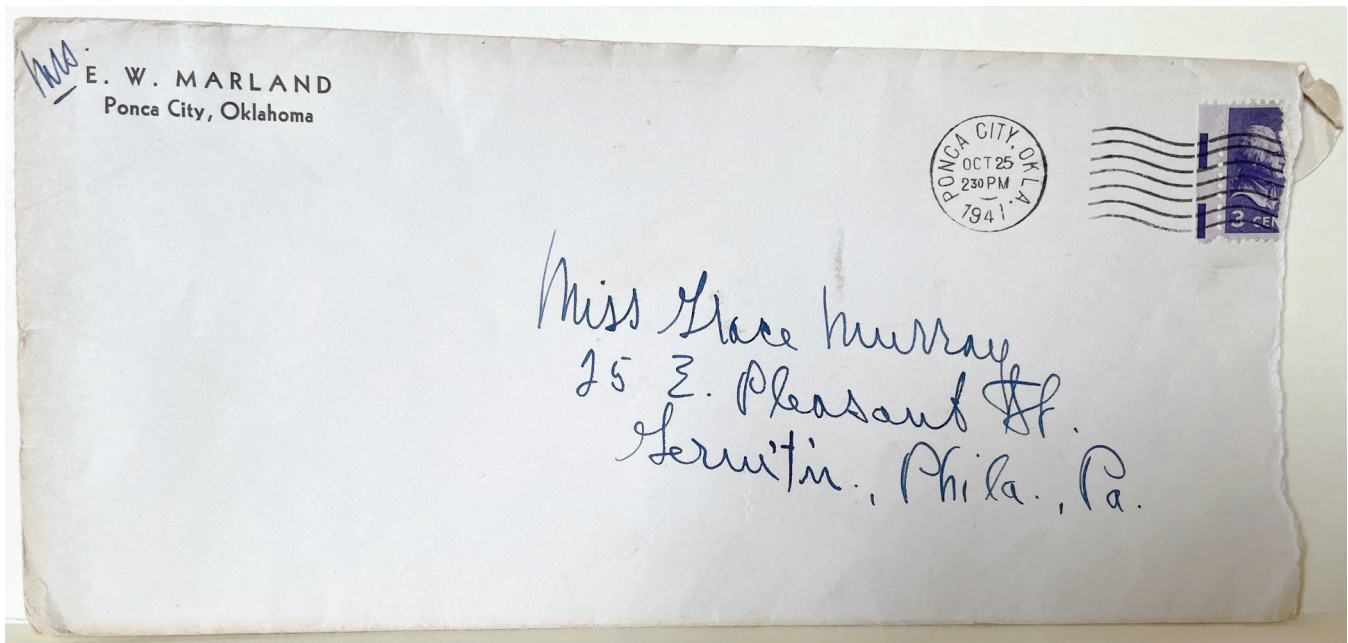 Mrs. E. W. MARLAND
Ponca City, Oklahoma
PONCA CITY, OKLA.
OCT 25
230 PM
1941.
3 CEN
Miss Grace Murray
25 E. Pleasant St.
Germ't'n., Phila., Pa.